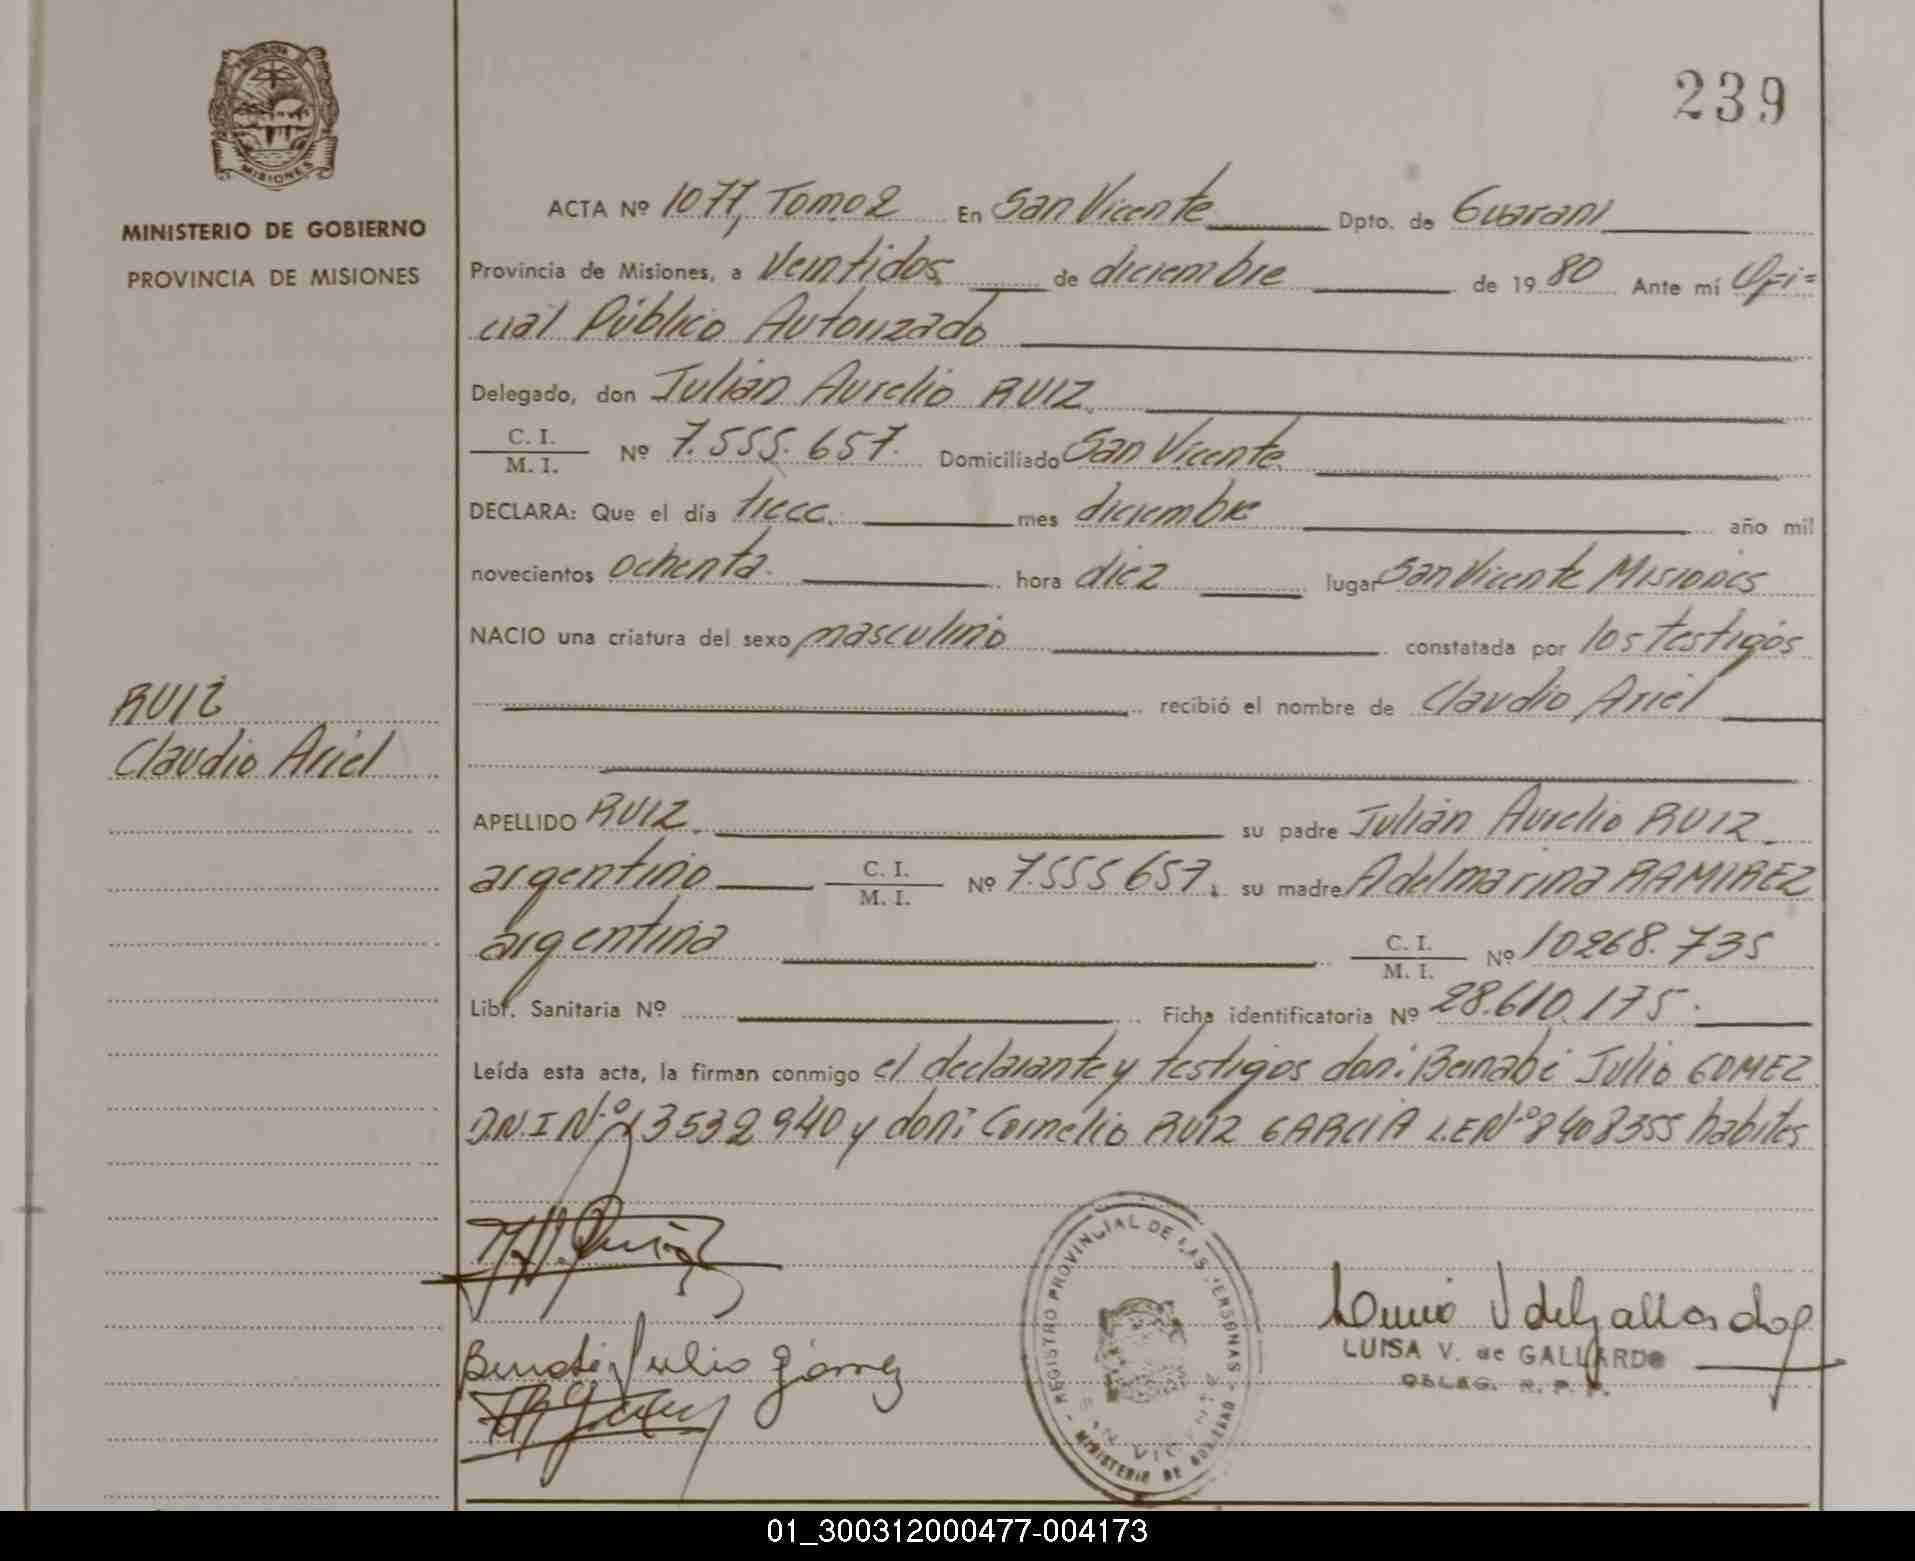 239
MISIONES
MINISTERIO DE GOBIERNO
PROVINCIA DE MISIONES
RUIZ
Claudio Ariel
ACTA Nº 1077, Tomo 2 En San Vicente Dpto. de Guarani
Provincia de Misiones, a Veintidos de diciembre de 19 80 Ante mí Ofi=
cial Público Autorizado
Delegado, don Julián Aurelio RUIZ
C. I.
M. I. Nº 7.555.657. Domiciliado San Vicente.
DECLARA: Que el día trece. mes diciembre año mil
novecientos ochenta. hora diez lugar San Vicente Misiones
NACIO una criatura del sexo masculino constatada por los testigos
recibió el nombre de Claudio Ariel
APELLIDO RUIZ. su padre Julián Aurelio RUIZ.
argentino C. I.
M. I. Nº 7.555.657, su madre Adelmarina RAMIREZ
argentina C. I.
M. I. Nº 10268.735
Libr. Sanitaria Nº Ficha identificatoria Nº 28.610.175.
Leída esta acta, la firman conmigo el declarante y testigos don: Bernabé Julio GOMEZ
D.N.I Nº 13532940 y don: Cornelio RUIZ GARCIA L.E Nº 8408355 habiles
Julio Gómez
REGISTRO PROVINCIAL DE LAS PERSONAS
SAN VICENTE
MINISTERIO DE GOBIERNO
V de Gallardo
LUISA V. de GALLARDO
DELEG. R. P. P.
01_300312000477-004173